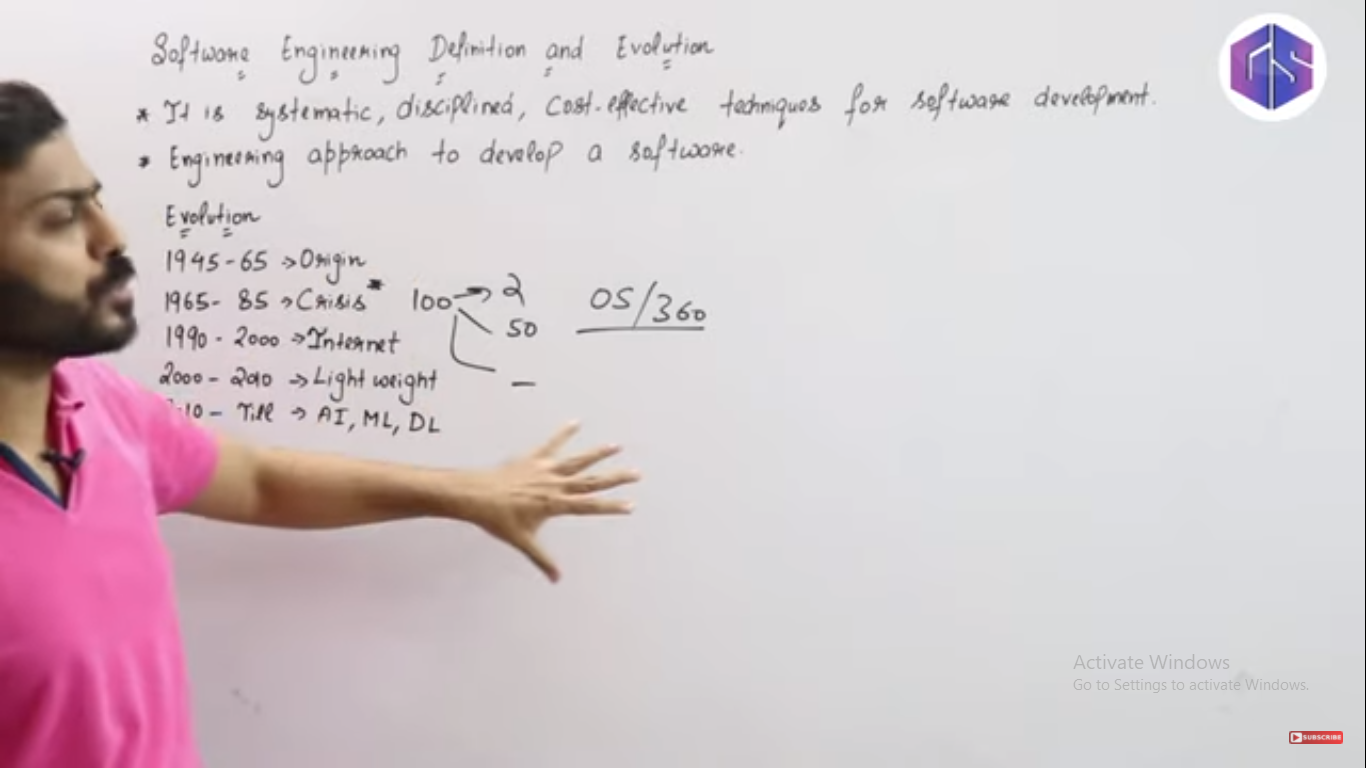 Software Engineering Definition and Evolution
* It is systematic, disciplined, cost-effective techniques for software development.
* Engineering approach to develop a software.
Evolution
1945-65 → Origin
1965-85 → Crisis * 100 → 2 OS/360
50
1990-2000 → Internet
2000-2010 → Light weight –
10 – Till → AI, ML, DL
GS
Activate Windows
Go to Settings to activate Windows.
SUBSCRIBE